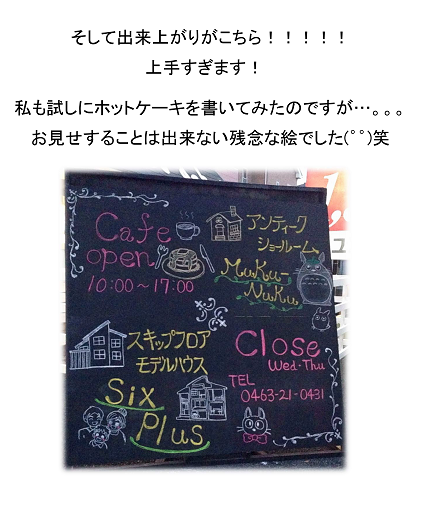 そして出来上がりがこちら！！！！！
上手すぎます！
私も試しにホットケーキを書いてみたのですが…。。。
お見せすることは出来ない残念な絵でした(ﾟﾟ)笑
Cafe
open
10:00～17:00
アンティーク
ショールーム
Muku-
Nuku
スキップフロア
モデルハウス
Six
Plus
Close
Wed・Thu
TEL
0463-21-0431